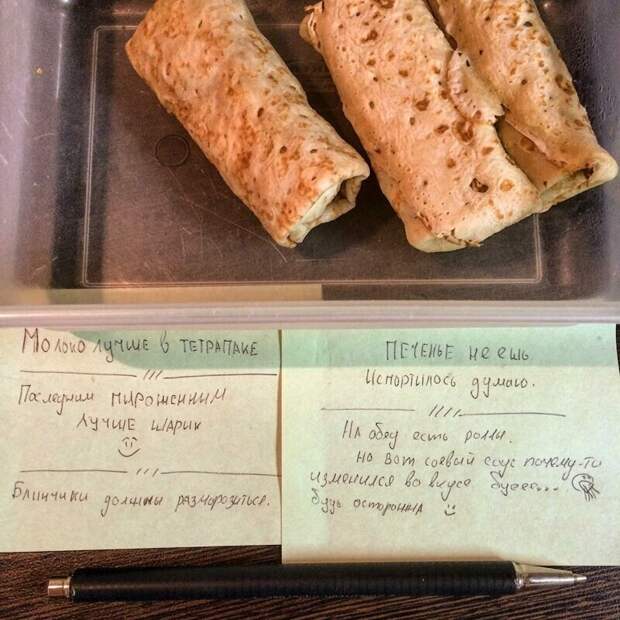 Молоко лучше в тетрапаке
Последним мирожинным
лучше шарик
Блинчики должны разморозиться.
Печенье не ешь
Испортилось думаю.
На обед есть роллы.
но вот соевый соус почему-то
изменился во вкусе буеее...
будь осторожна